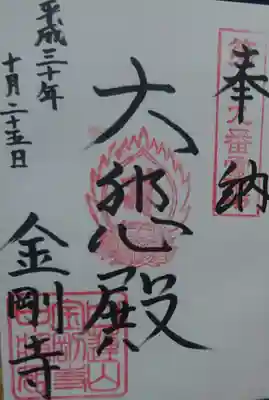 奉納
大悲殿
平成三十年
十月二十五日
金剛寺